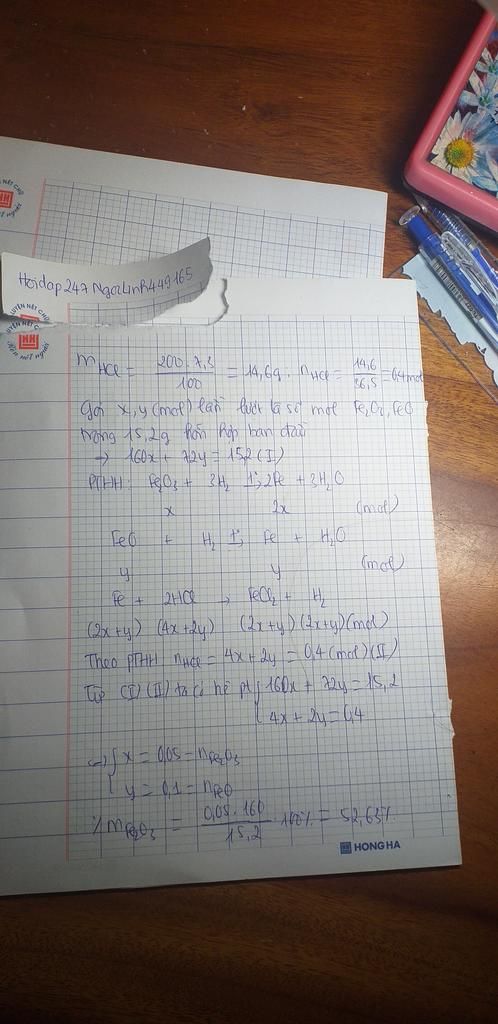 Hoidap247 NgocLinh449165
LUYỆN NÉT CHỮ
HH
Rèn nết người
m HCl = 200.7,3/100 = 14,6g; n HCl = 14,6/36,5 = 0,4 mol
Gọi x, y (mol) lần lượt là số mol Fe₂O₃, FeO
trong 15,2g hỗn hợp ban đầu
→ 160x + 72y = 15,2 (I)
PTHH: Fe₂O₃ + 3H₂ t°→ 2Fe + 3H₂O
x 2x (mol)
FeO + H₂ t°→ Fe + H₂O
y y (mol)
Fe + 2HCl → FeCl₂ + H₂
(2x+y) (4x+2y) (2x+y) (2x+y) (mol)
Theo PTHH n HCl = 4x + 2y = 0,4 (mol) (II)
Từ (I) (II) ta có hệ pt { 160x + 72y = 15,2
4x + 2y = 0,4
⇔ { x = 0,05 = n Fe₂O₃
y = 0,1 = n FeO
% m Fe₂O₃ = 0,05.160/15,2 .100% = 52,63%
HH HONG HA